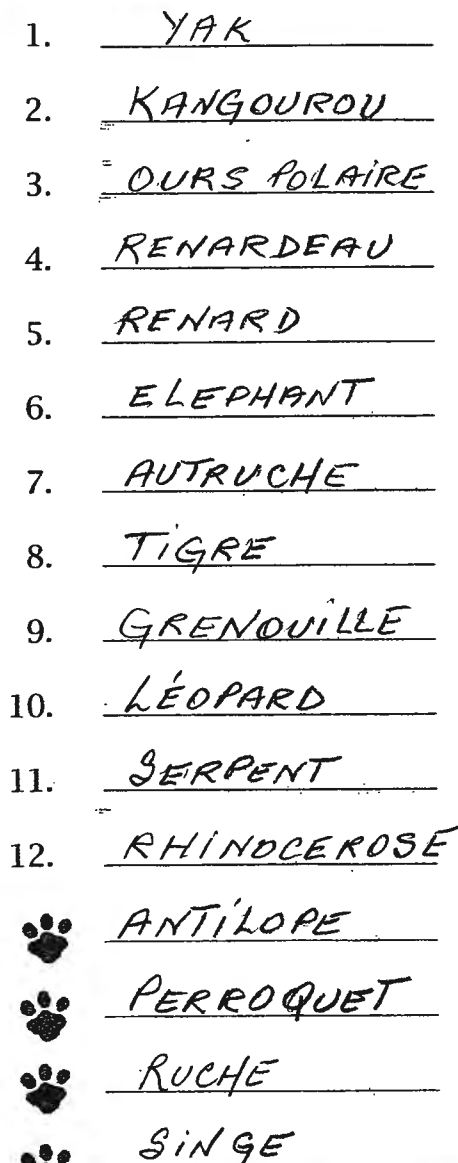 1. YAK
2. KANGOUROU
3. OURS POLAIRE
4. RENARDEAU
5. RENARD
6. ELEPHANT
7. AUTRUCHE
8. TIGRE
9. GRENOUILLE
10. LÉOPARD
11. SERPENT
12. RHINOCEROSE
ANTILOPE
PERROQUET
RUCHE
SINGE